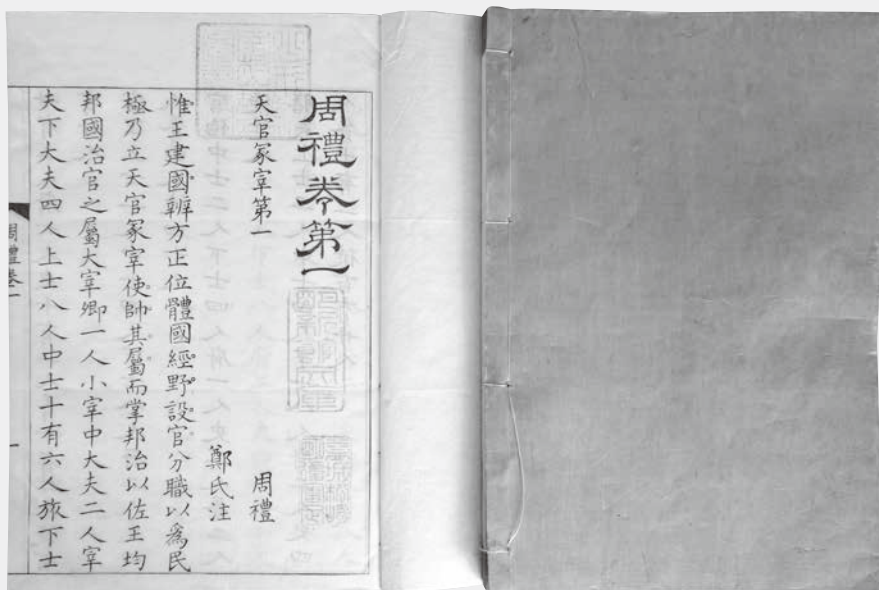 周禮卷第一
天官冢宰第一　周禮
鄭氏注
惟王建國辨方正位體國經野設官分職以爲民
極乃立天官冢宰使帥其屬而掌邦治以佐王均
邦國治官之屬大宰卿一人小宰中大夫二人宰
夫下大夫四人上士八人中士十有六人旅下士
周禮卷一
一